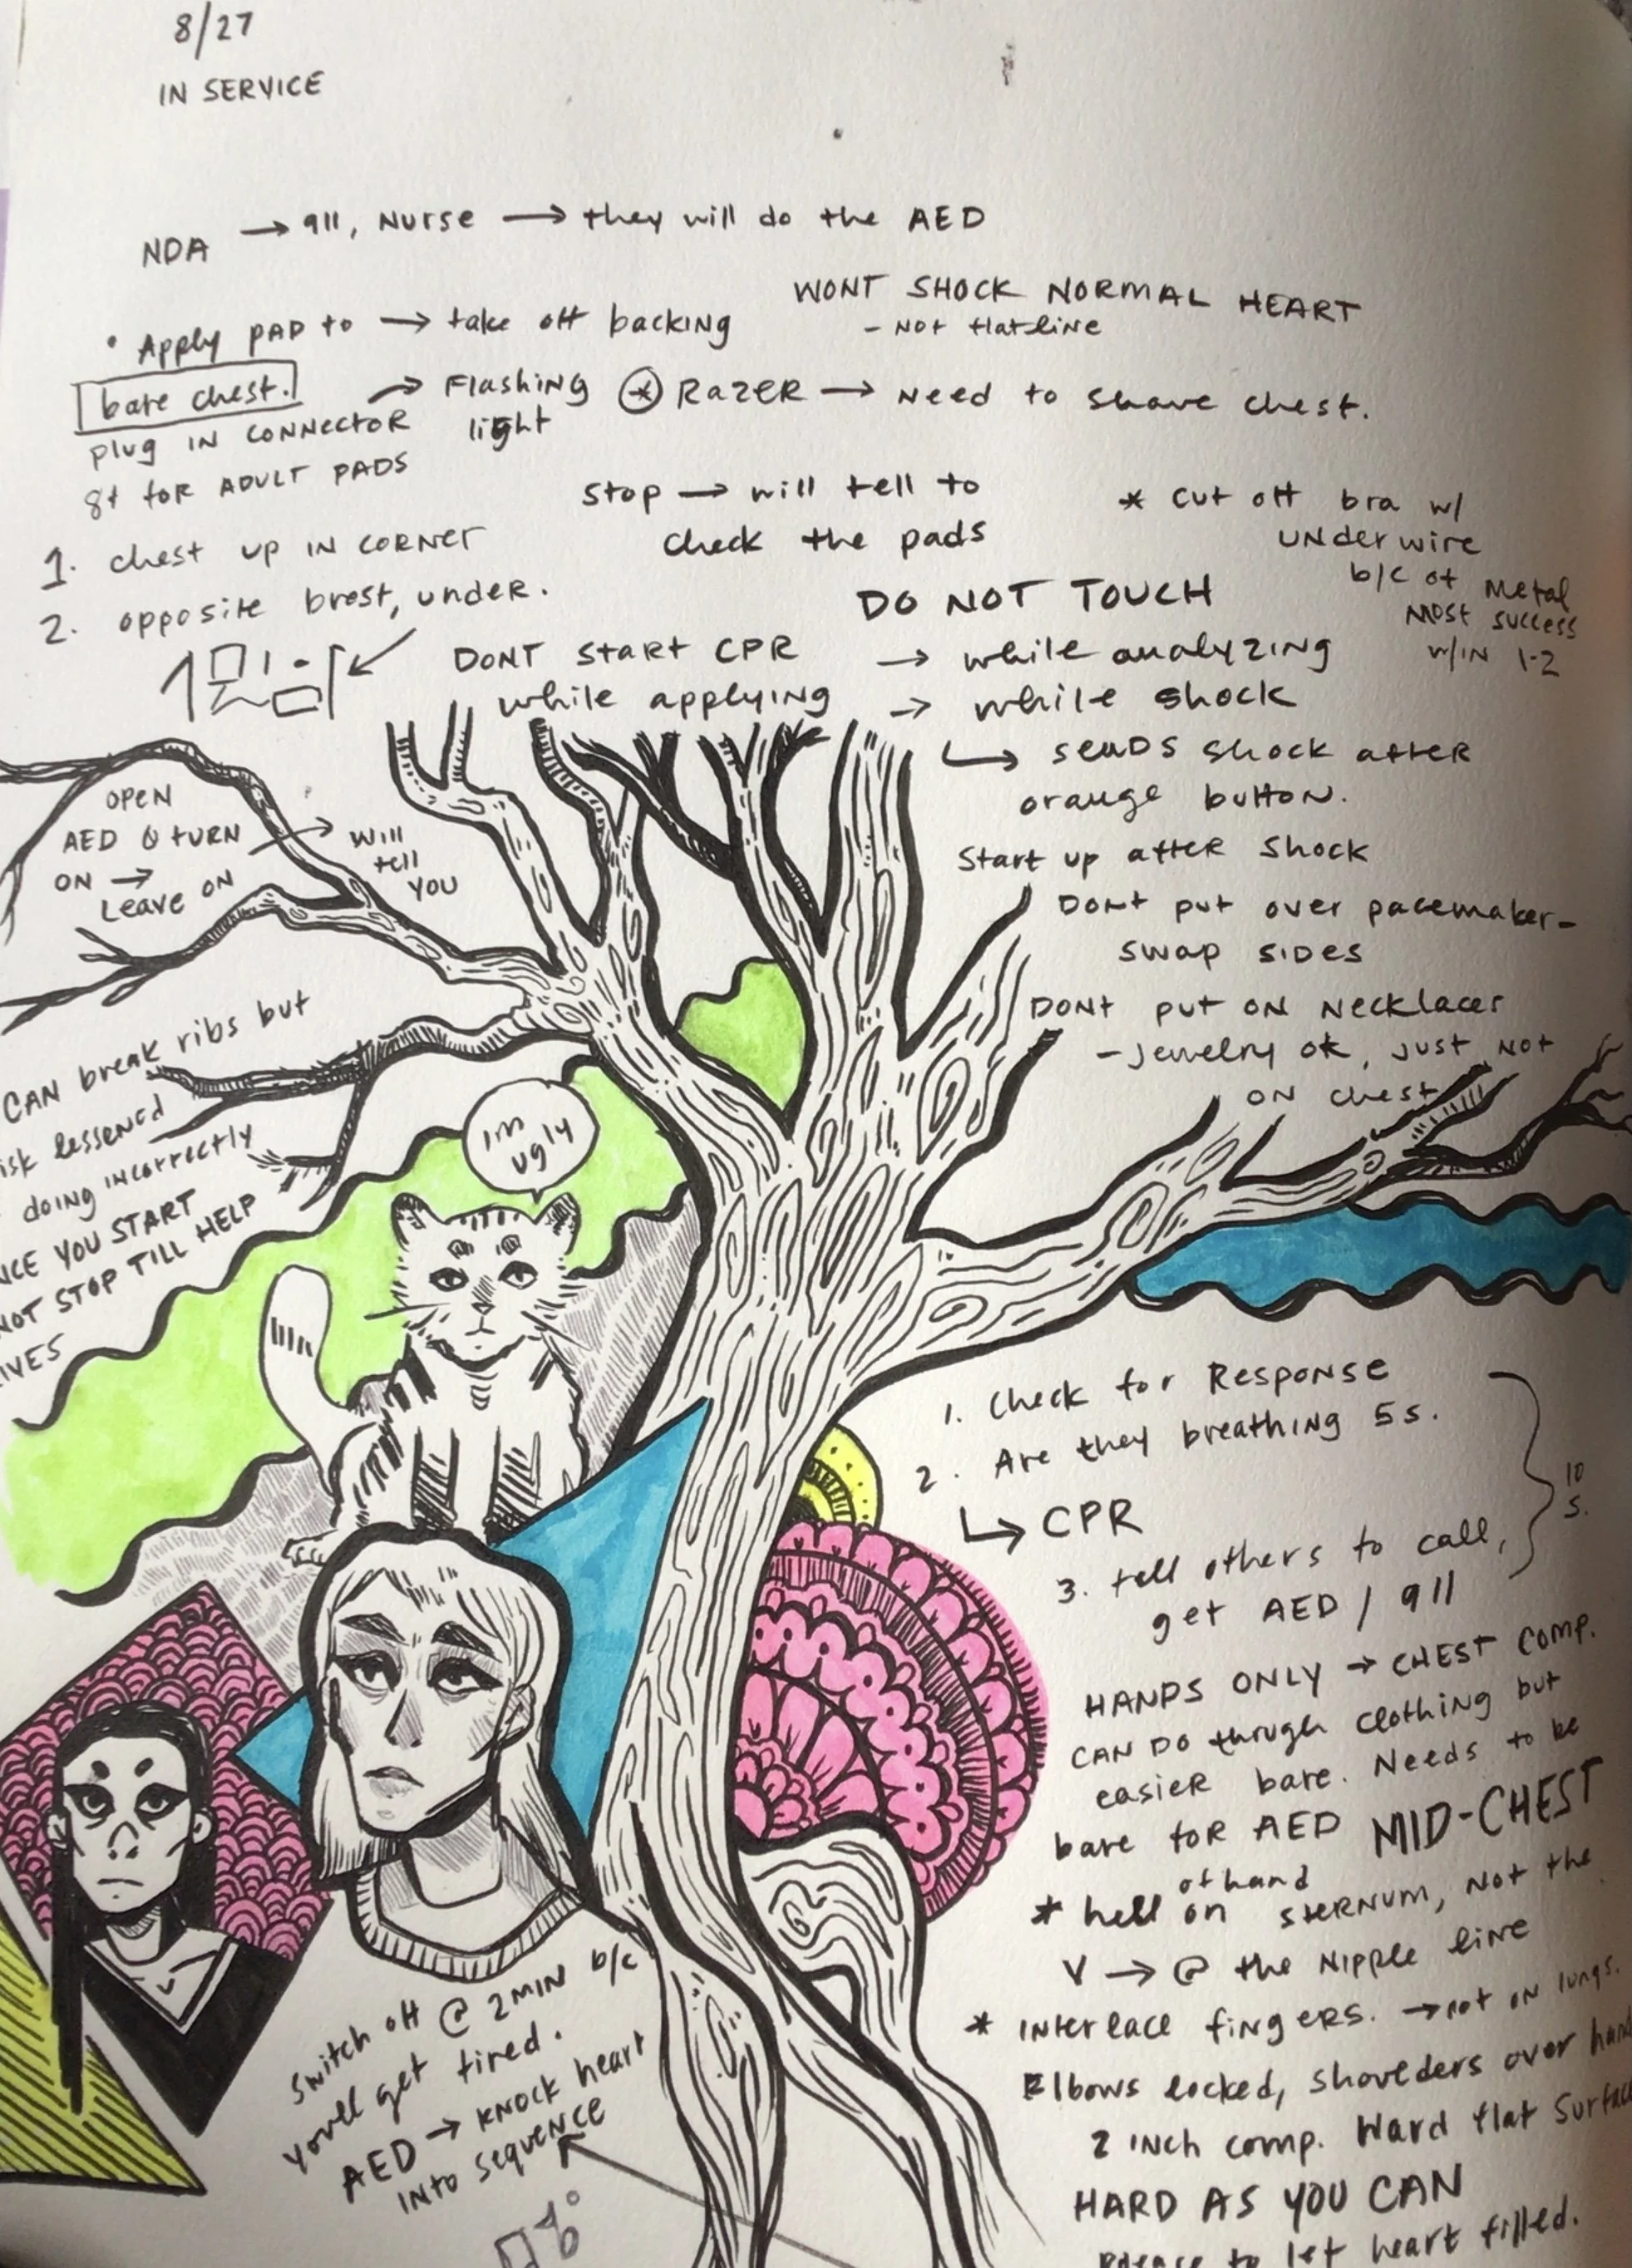 8/27
IN SERVICE
NDA → 911, Nurse → they will do the AED
WONT SHOCK NORMAL HEART
- NOT flatline
• Apply PAD to → take off backing
bare chest.
plug IN CONNECTOR → Flashing light
8+ for ADULT PADS
* RAZER → Need to shave chest.
Stop → will tell to
check the pads
* Cut off bra w/
underwire
b/c of metal
MOST success
w/IN 1-2
1. chest up IN CORNER
2. opposite brest, under.
DONT START CPR
while applying
DO NOT TOUCH
→ while analyzing
→ while shock
↳ SENDS shock after
orange button.
Start up after shock
Dont put over pacemaker-
swap sides
DONT put ON Necklaces
- jewelry ok, just NOT
ON chest
OPEN
AED & TURN
ON →
Leave ON
→ will
tell
YOU
CAN break ribs but
isk lessened
doing incorrectly
NCE YOU START
NOT STOP TILL HELP
IVES
im
ugly
1. Check for Response
2. Are they breathing 5s.
↳ CPR
3. tell others to call,
get AED / 911
10
s.
HANDS ONLY → CHEST COMP.
CAN DO through clothing but
easier bare. Needs to be
bare for AED
MID-CHEST
* hell of hand on STERNUM, NOT the
V → @ the Nipple line
* INterlace fingers. → not on lungs.
Elbows locked, shoulders over han
2 INCH comp. Hard flat Surfac
HARD AS YOU CAN
let heart filled.
Switch off @ 2 MIN b/c
you'll get tired.
AED → KNOCK heart
INTO sequence